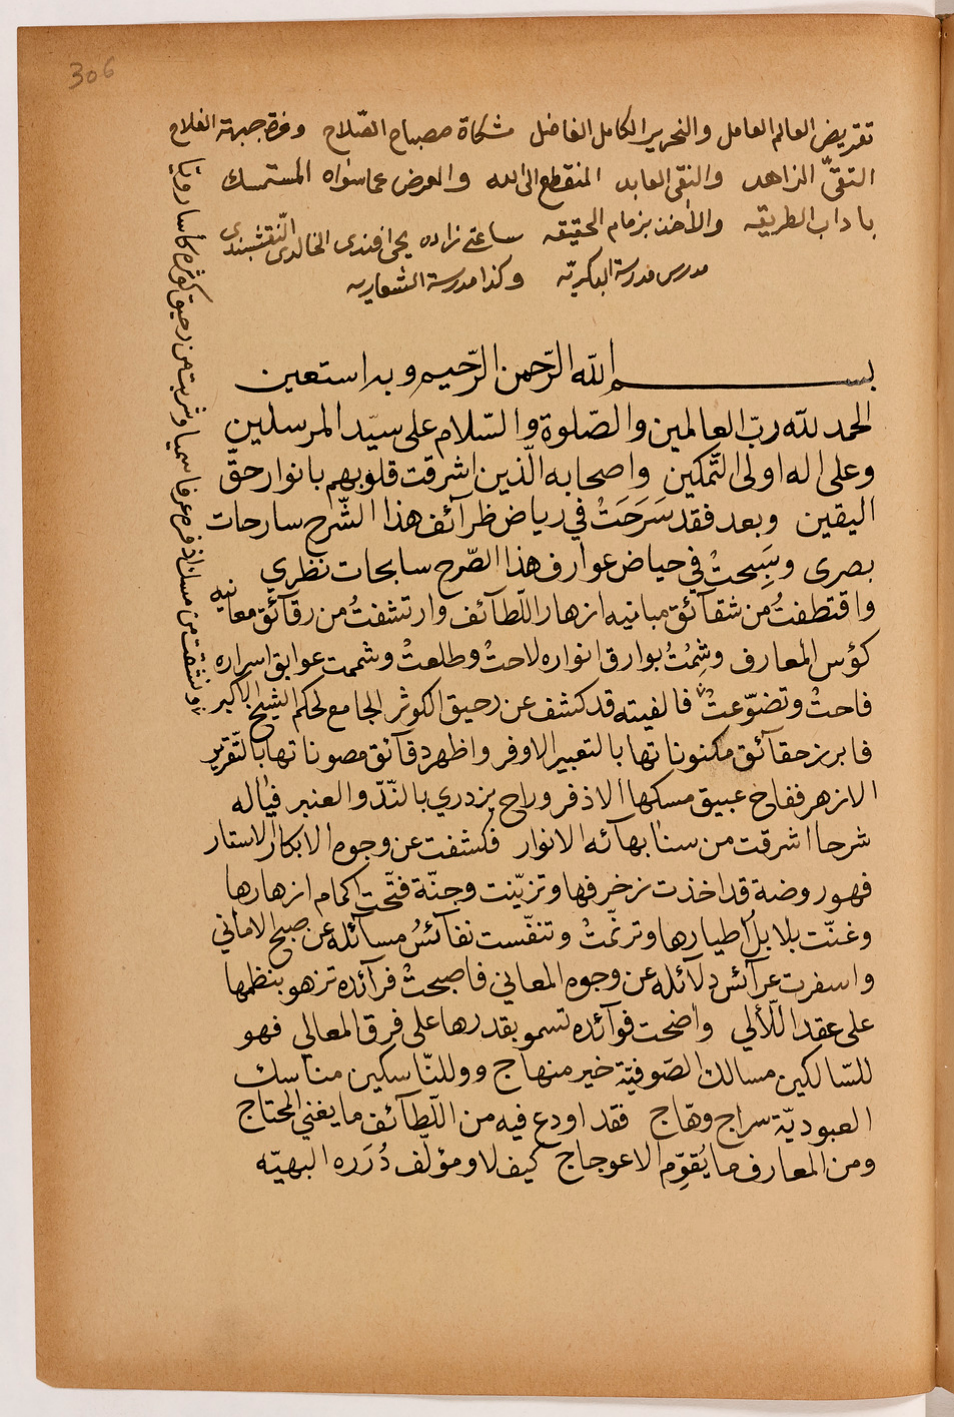 306
تقريض العالم العامل والنحرير الكامل الفاضل مشكاة مصباح الصّلاح وغرة جبهة الفلاح
التقىّ الزاهد والنقى العابد المنقطع الى الله والمعرض عما سواه المستمسك
باداب الطريقه والاخذ بزمام الحقيقه ساعتى زاده يحى افندى الخالدى النّقشبندى
مدرس مدرسة البكريّه وكذا مدرسة الشعاريه
بســـــم الله الرّحمن الرّحيم وبه استعين
الحمد للّه ربّ العالمين والصّلوة والسّلام على سيّد المرسلين
وعلى اله اولى التّمكين واصحابه الّذين اشرقت قلوبهم بانوار حقّ
اليقين وبعد فقد سَرَحَتْ في رياض ظرآئف هذا الشّرح سارحات
بصرى وسَبِحتْ في حياض عوارف هذا الصّرح سابحات نظري
واقتطفتُ من شقآئق مبانيه ازهار اللّطآئف وارتشفتُ من رقآئق معانيه
كؤس المعارف وشِمْتُ بوارق انواره لاحتْ وطلعتْ وشممت عوابق اسراره
فاحتْ وتضوّعتْ فالفيته قد كشف عن رحيق الكوثر الجامع لحكم الشيخ الاكبر
فابرز حقآئق مكنوناتها بالتعبير الاوفر واظهر دقآئق مصوناتها بالتّقرير
الازهر ففاخ عبيق مسكها الاذفر وراح يزدري بالنّدّ والعنبر فياله
شرحا اشرقت من سنا بهآئه الانوار فكشفت عن وجوه الابكار الاستار
فهو روضة قد اخذت زخرفها وتزيّنت وجنّة فتّحت اكمام ازهارها
وغنّت بلابل اطيارها وترنّمتْ وتنفّست نفآئسُ مسآئله عن صبح الاماني
واسفرت عرآئس دلآئله عن وجوه المعاني فاصبحتْ فرآئده تزهو بنظمها
على عقد اللّآلي واضحت فوآئده تسمو بقدرها على فرق المعالي فهو
للسّالكين مسالك الصّوفيّة خير منهاج ووللنّاسكين مناسك
العبوديّة سراج وهّاج فقد اودع فيه من اللّطآئف ما يغني المحتاج
ومن المعارف ما يُقوِّم الاعوجاج كيف لا ومؤلّف دُرَره البهيّه
ونشقت من مسك اذفره عرفا سميا وشربت من رحيق كوثره كأسا رويّا